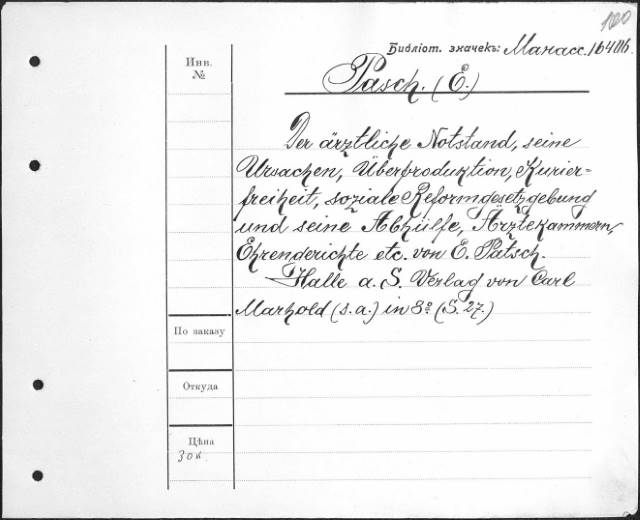 100
Библіот. значекъ: Манасс. 16406.
Инв.
№
Pasch. (E.)
Der ärztliche Notstand, seine
Ursachen, Überproduktion, Kurier-
freiheit, soziale Reformgesetzgebung
und seine Abhülfe, Ärztekammern,
Ehrengerichte etc. von E. Patsch.
Halle a. S. Verlag von Carl
Marhold (s. a.) in 8º (S. 27.)
По заказу
Откуда
Цѣна
30к.